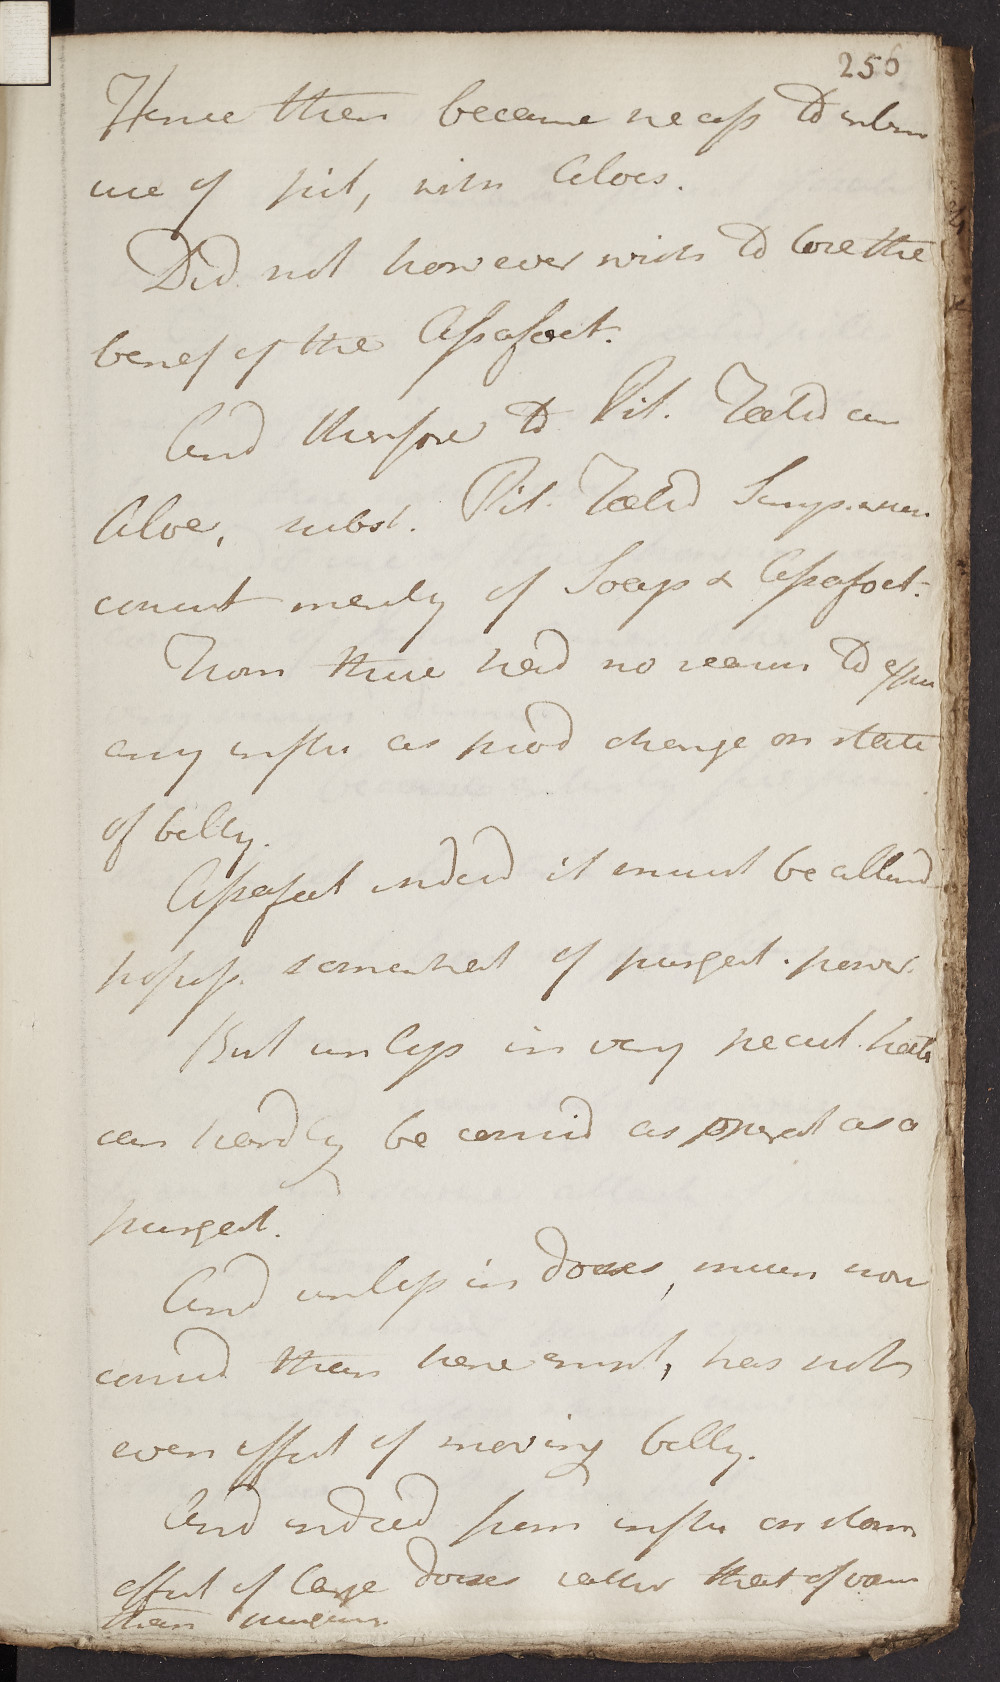 256
Hence then became necess to
use of pil, with Aloes.
Did not however wish to lose the
benef of the Assafoet.
And therefore to Pil. Foetid cum
Aloe, subst. Pil. Foetid
consist merely of Soap & Assafoet.
From these had no reason to
any influ as prod change on state
of belly.
Assafoet indeed it must be allowd
possess. somewhat of purgat. power.
But unless in very pecul. habits
can hardly be consid as operat as a
purgat.
And unless in doses, much more
consid than here empl, has not
even effect of moving belly.
And indeed from influ on stom
effect of large doses rather that of vom
than purging.